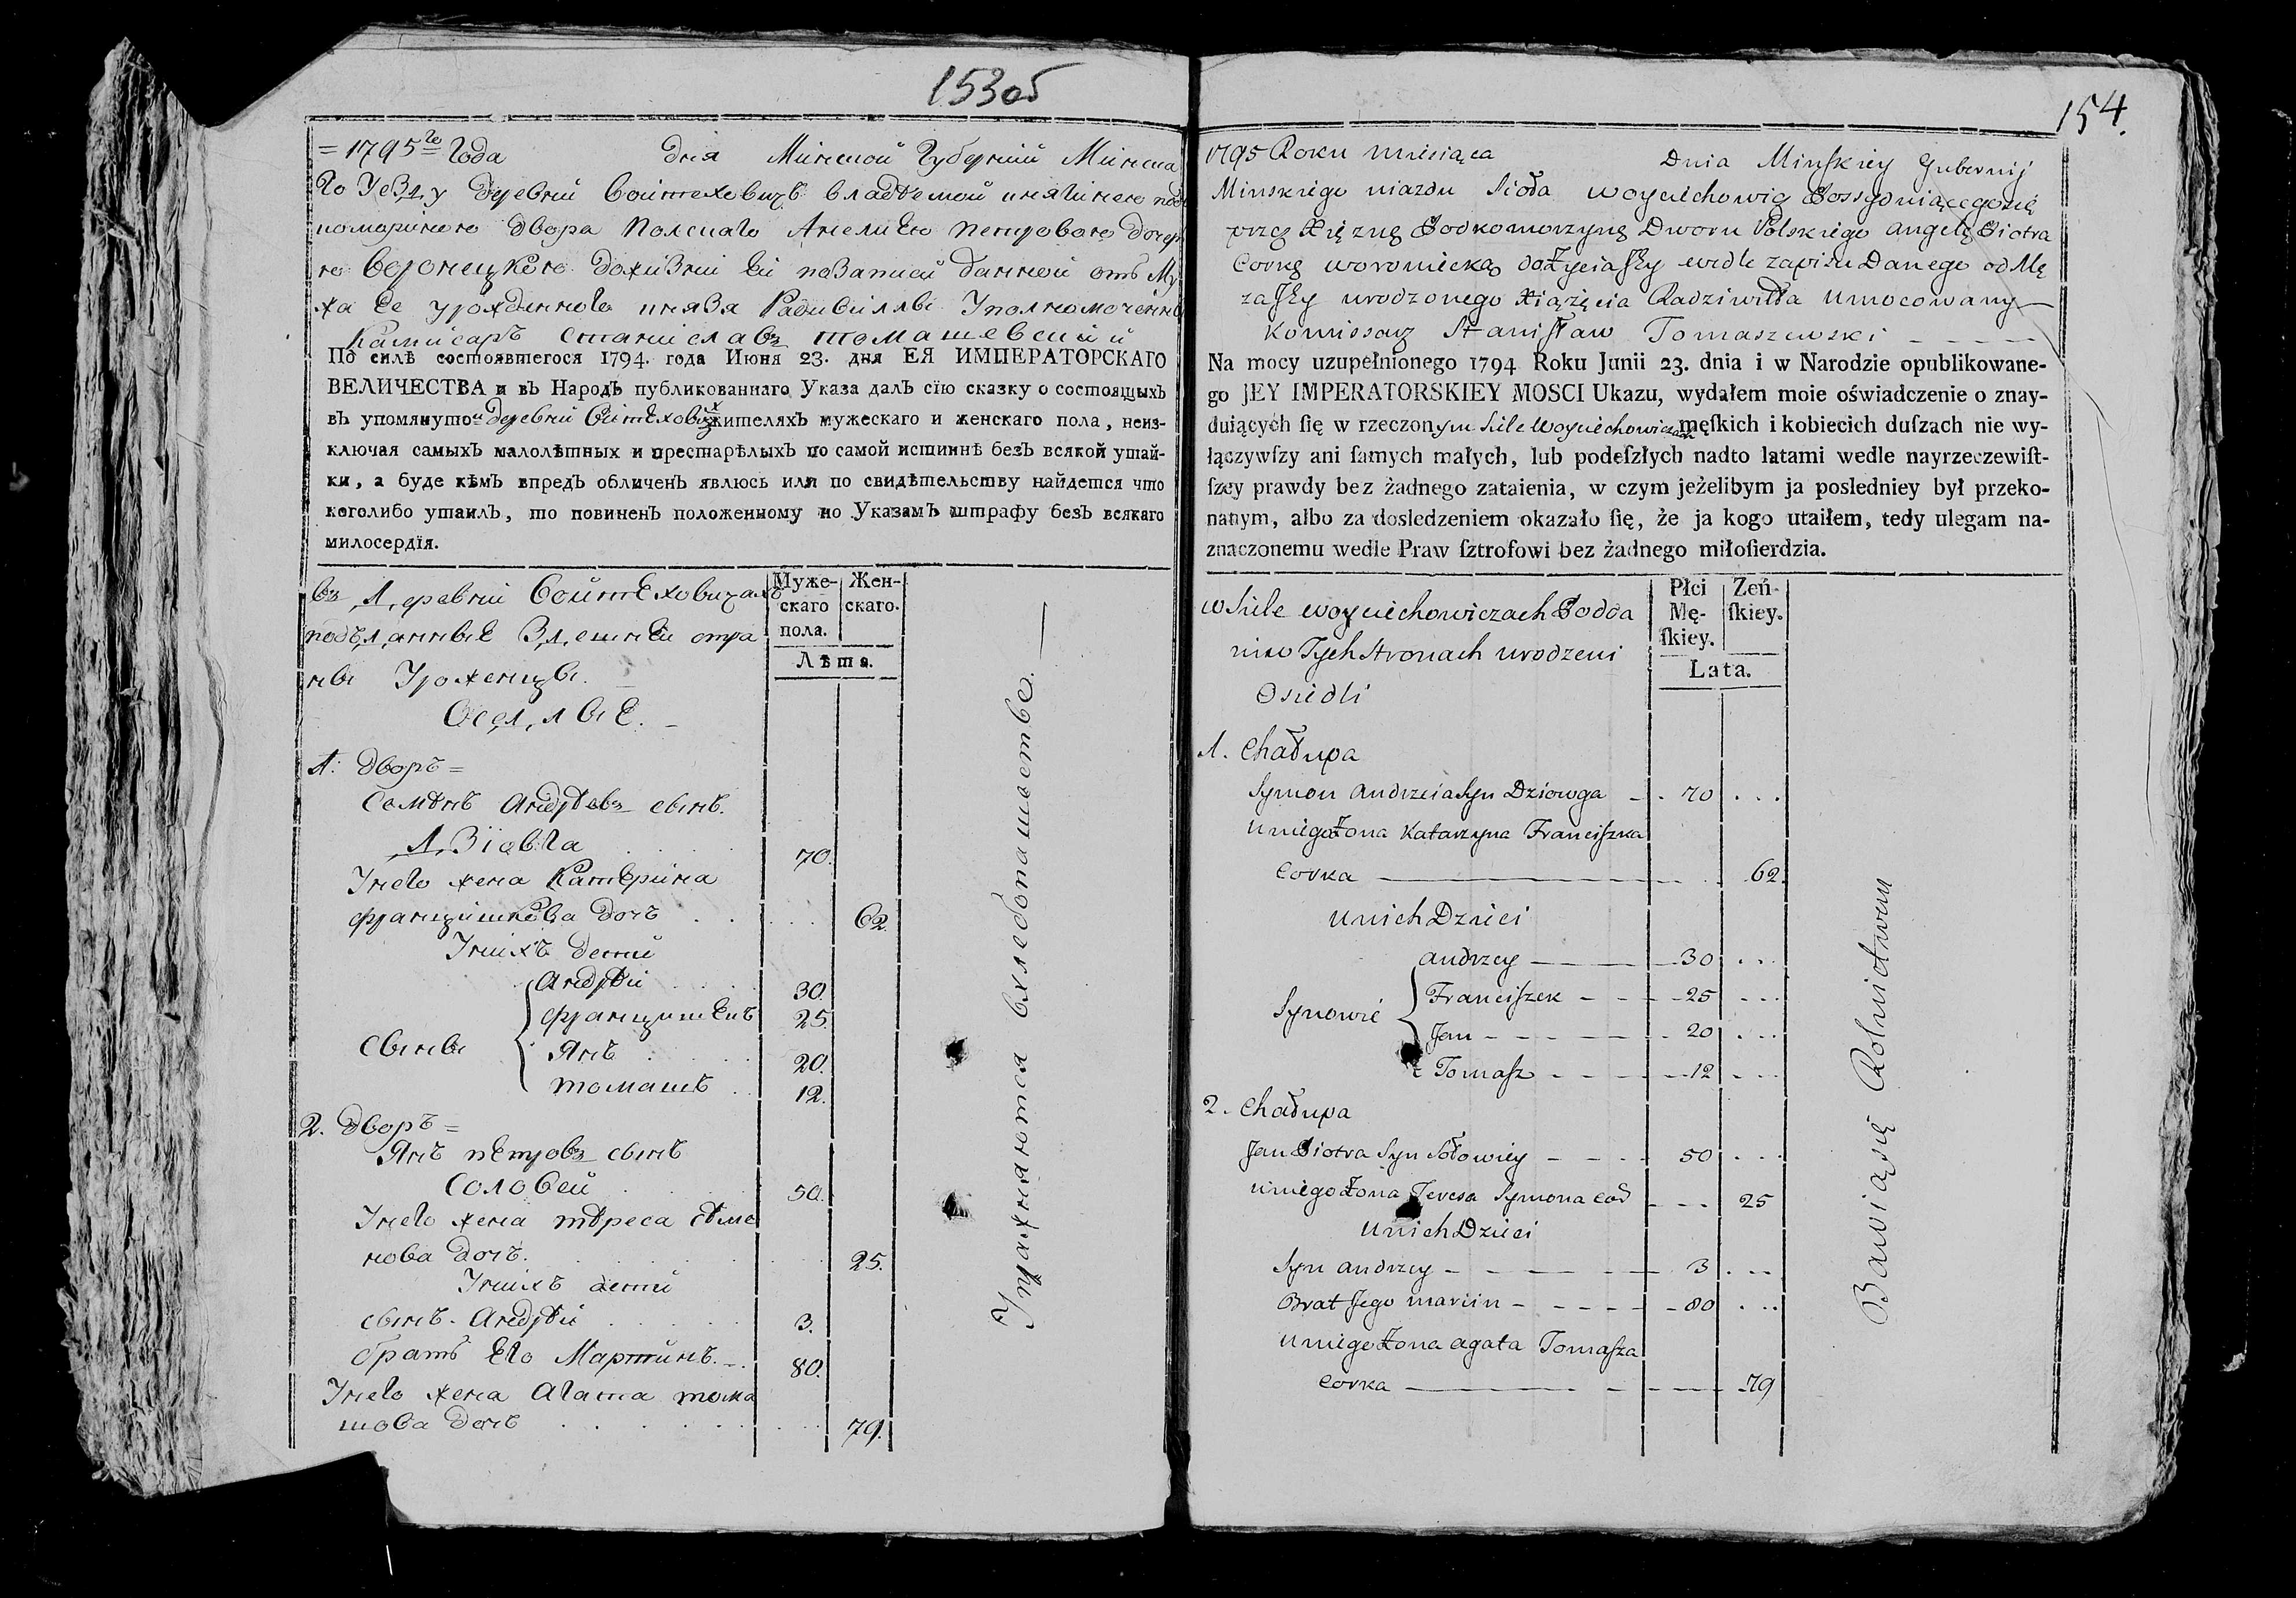 153об
= 1795го Года дня Минской Губернии Минска
го Уезду деревни Войтеховичъ владѣемой
коморного двора Полскаго Анелиею Петровою дочер
Воронецкою до жизни ей по записи данной отъ Му
жа ее урожденного князя Радивиллы Уполномоченны
Камисаръ Станиславъ Томашевский
По силѣ состоявшегося 1794. года Июня 23. дня ЕЯ ИМПЕРАТОРСКАГО
ВЕЛИЧЕСТВА и въ Народъ публикованнаго Указа далъ сїю сказку о состоящыхъ
въ упомянутой деревни Войтеховичах жителяхъ мужескаго и женскаго пола, неиз-
ключая самыхъ малолѣтныхъ и престарѣлыхъ по самой истиннѣ безъ всякой утай-
ки, а буде кѣмъ впредъ обличенъ явлюсь или по свидѣтельству найдется что
коголибо утаилъ, то повиненъ положенному по Указамъ штрафу безъ всякаго
милосердїя.
въ деревни Войтеховичахъ
подданные здешней стра
ны Уроженцы.
Оседлые.
Муже-
скаго
пола.
Жен-
скаго.
Лѣта.
1: дворъ =
Семѣнъ Андрѣевъ сынъ
Дзiовга 70.
У него жена Катерина
францишкова дочь 62.
У нихъ дети
сыны
Андрѣй 30.
францишекъ 25.
Янъ 20.
томашъ 12.
2. дворъ =
Янъ петровъ сынъ
Соловей 50.
У него жена тѣреса сѣме
нова дочь. 25.
У нихъ дети
сынъ. Андрѣй 3.
братъ Его Мартинъ. 80.
У него жена Агата тома
шова дочь 79.
Упражняются в хлебопашестве.
154.
1795 Roku miesiąca Dnia Minskiey Gubernij
Minskiego uiazdu Sioła Woyciechowicz Possydniącegosię
przez Xięznę Podkomorzynę Dworu Polskiego Angelę Piotra
Corkę woroniecką dożyciaſzy wedle zapisu Danego od Mę
żaſzy urodzonego Xiążęcia Radziwiłła Umocowany
Komissarz Stanisław Tomaszewski
Na mocy uzupełnionego 1794 Roku Junii 23. dnia i w Narodzie opublikowane-
go JEY IMPERATORSKIEY MOSCI Ukazu, wydałem moie oświadczenie o znay-
duiących ſię w rzeczonym Siele Woyciechowiczach męſkich i kobiecich duſzach nie wy-
łączywſzy ani ſamych małych, lub podeſzłych nadto latami wedle nayrzeczewiſt-
ſzey prawdy bez żadnego zataienia, w czym jeżelibym ja posledniey był przeko-
nanym, albo za dosledzeniem okazało ſię, że ja kogo utaiłem, tedy ulegam na-
znaczonemu wedle Praw ſztrofowi bez żadnego miłoſierdzia.
w Siele Woyciechowiczach Podda
ni w Tych Stronach urodzeni
Osiedli
Płci
Mę-
ſkiey.
Zeń-
ſkiey.
Lata.
1. Chałupa
Symon Andrzeia Syn Dziowga 70
U niego Żona Katarzyna Franciſzka
Corka 62.
U nich Dzieci
Synowie
Andrzey 30
Franciſzek 25
Jan 20
Tomaſz 12
2. Chałupa
Jan Piotra Syn Sołowiey 50
U niego Żona Teresa Symona Cod 25
U nich Dzieci
Syn Andrzey 3
Brat Jego Marcin 80
U niego Żona Agata Tomaſza
Corka 79
Bawią się Rolnictwem